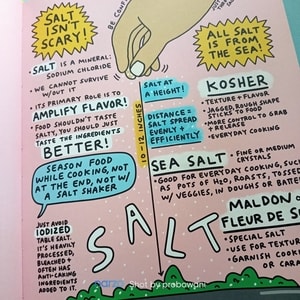 BE CONF
SALT
ISN'T
SCARY!
• SALT IS A MINERAL:
SODIUM CHLORIDE
• WE CANNOT SURVIVE
W/OUT IT
• ITS PRIMARY ROLE IS TO
AMPLIFY FLAVOR!
• FOOD SHOULDN'T TASTE
SALTY, YOU SHOULD JUST
TASTE THE INGREDIENTS
BETTER!
SEASON FOOD
WHILE COOKING, NOT
AT THE END, NOT W/
A SALT SHAKER
JUST AVOID
IODIZED
TABLE SALT.
IT'S HEAVILY
PROCESSED,
BLEACHED +
OFTEN HAS
ANTI-CAKING
INGREDIENTS
ADDED TO IT.
SALT AT
A HEIGHT!
DISTANCE =
SALT SPREAD
EVENLY +
EFFICIENTLY
10-12 INCHES
ALL SALT
IS FROM
THE SEA!
KOSHER
• TEXTURE + FLAVOR
• JAGGED, ROUGH SHAPE
STICKS TO FOOD
• MORE CONTROL TO GRAB
+ RELEASE
• EVERYDAY COOKING
SEA SALT
• FINE OR MEDIUM
CRYSTALS
• GOOD FOR EVERYDAY COOKING, SUCH
AS POTS OF H2O, ROASTS, TOSSED
W/ VEGGIES, IN DOUGHS OR BATTE
MALDON or
FLEUR DE S
• SPECIAL SALT
• USE FOR TEXTUR
• GARNISH COOK
OR CARA
SALT
Shot by prabowani